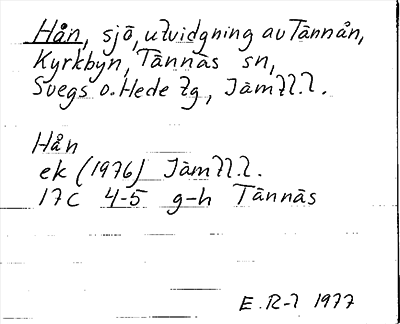 Hån, sjö, utvidgning av Tännån,
Kyrkbyn, Tännäs sn,
Svegs o. Hede tg, Jämtl.l.
Hån
ek (1976) Jämtl.l.
17C 4-5 g-h Tännäs
E. R-l 1977